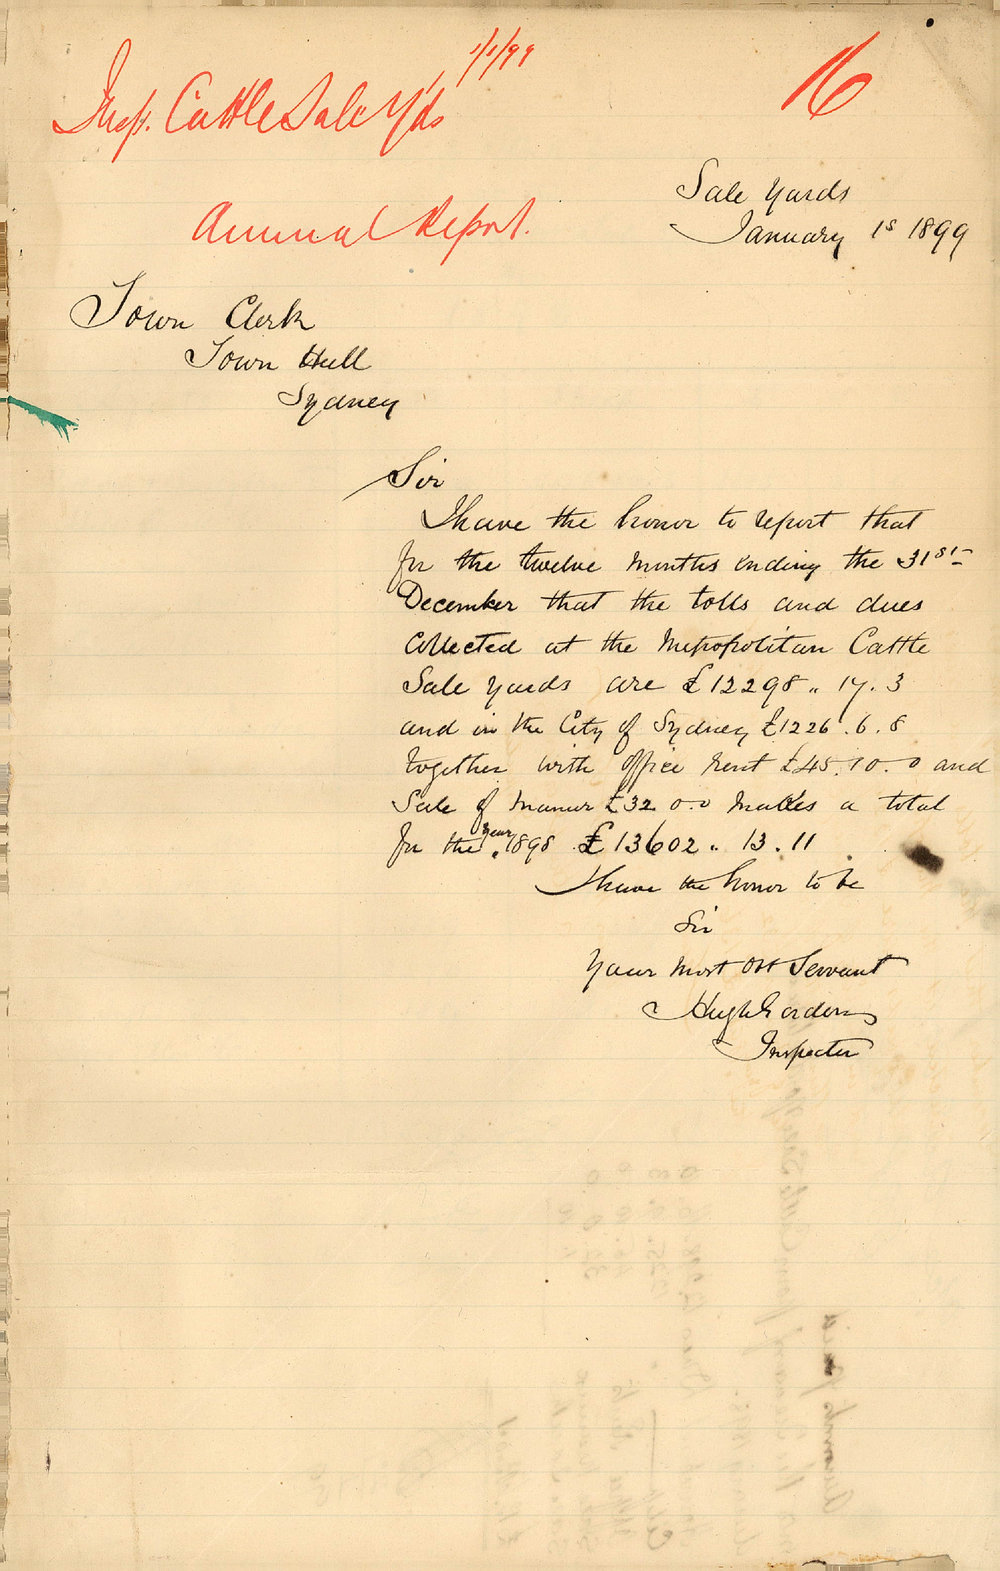 1/1/99
Insp. Cattle Sale Yds
16
Annual Report.
Sale Yards
January 1s 1899
Town Clerk
Town Hall
Sydney
Sir
I have the honor to report that
for the twelve months ending the 31st
December that the tolls and dues
collected at the Metropolitan Cattle
Sale Yards are £12298 " 17. 3
and in the City of Sydney £1226. 6. 8
together with office rent £45. 10. 0 and
Sale of manure £32 0.0 makes a total
for the year 1898 £13602 " 13. 11
I have the honor to be
Sir
Your most Obt Servant
Hugh Gordon
Inspector